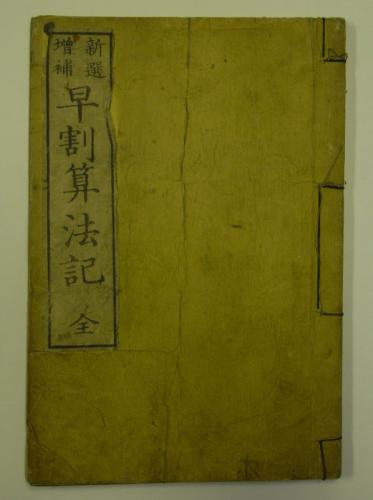 新選
增補
早割算法記
全